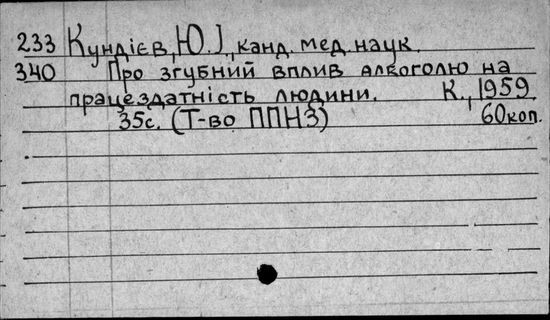 233 Кундієв, Ю.І., канд. мед. наук.
340 Про згубний вплив алкоголю на
працездатність людини. К., 1959.
35с. (Т-во ППНЗ) 60коп.